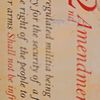 2nd Amendment
regulated militia being
y for the security of a
e right of the people to
r arms Shall not be infr